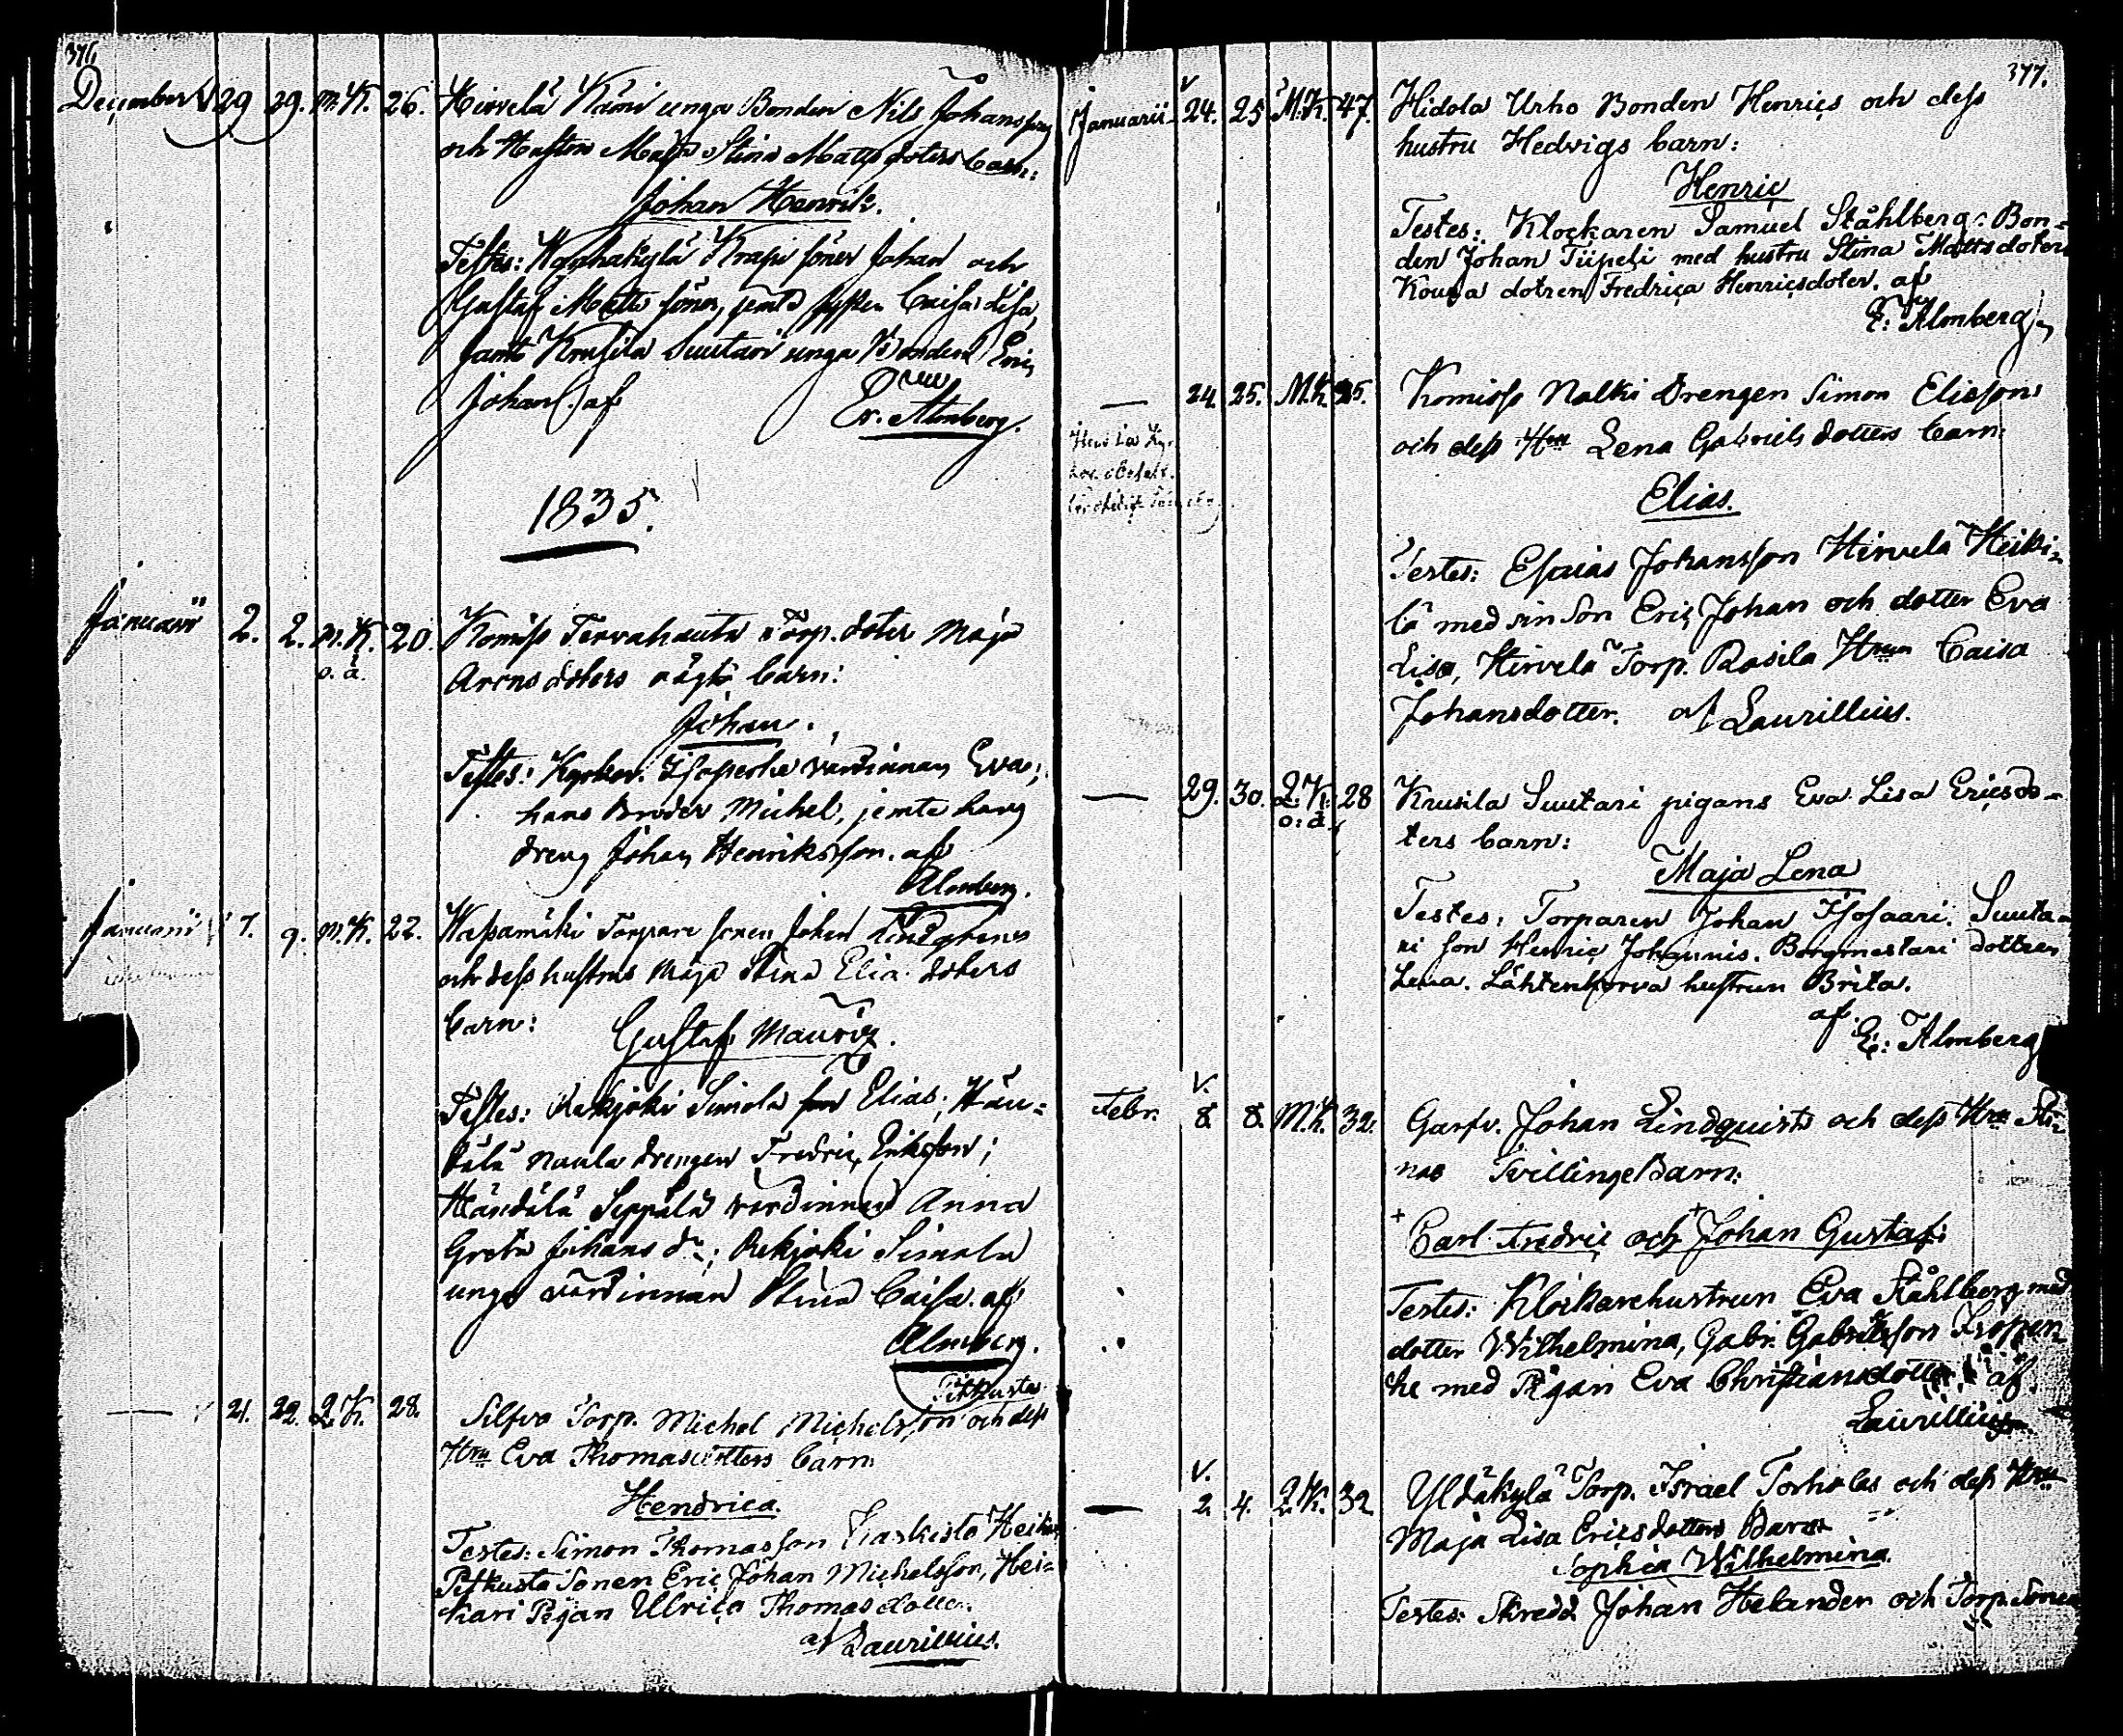 376.
December 29 29. M.K. 26. Hirvelä Kämi unga Bonden Nils Johansson
och Hustrus Maja Stina Matts doters barn:
Johan Henrik.
Testes: Krapi söner Johan och
Gustaf Matts söner, jemte Caisa Lisa,
samt Krusila Suutari unga Bonden Eric
Johan af
Er. Almberg.
1835.
Januarii 2. 2. M.K. 20. Komiss Tervahauta Torp. doter Maja
o.ä. Arons doters oägta barn:
Johan.
Testes: Kyrkov. Isoperhe värdinnan Eva;
hans Broder Michel, jemte hans
dreng Johan Henriksson. af
Almberg.
Januarii 7. 9. M.K. 22. Wassamäki Torpare sonen Johan Lindgrens
och dess hustrus Maja Stina Elie doters
barn: Gustaf Mauriz.
Testes: Rekijoki Simola son Elias; Hän-
dälä Naula drengen Fredric Ericsson;
Händälä Seppälä värdinnan Anna
Greta Johans dr; Rekijoki Simola
unga värdinnan Stina Caisa. af
Almberg.
Pitkusta
— 21. 22. L.K. 28. Silfvo Torp. Michel Michelsson och dess
Hru Eva Thomasdotters barn
Hendrica.
Testes: Simon Thomasson Heik
Pitkusta Sonen Eric Johan Michelsson, Hei-
kari Pigan Ulrica Thomasdotter.
af Laurillius.
377.
Januarii 24. 25 M.K. 47. Hidola Urho Bonden Henrics och dess
hustru Hedvigs barn:
Henric
Testes: Klockaren Samuel Ståhlberg: Bon-
den Johan Tiipeli med hustru Stina Mattsdoter
Kouva dotren Fredrica Henricsdoter. af
E: Almberg
— 24. 25. M.K. 25. Komiss Nalki Drengen Simon Eliesons
och dess Hru Lena Gabriels dotters barn:
Elias.
Testes: Esaias Johansson Hirvelä Heiki-
lä med sin Son Eric Johan och dotter Eva
Lisa, Hirvelä Torp. Rasila Hrun Caisa
Johansdotter. af Laurillius.
— 29. 30. L.K. 28 Krusila Suutari pigans Eva Lisa Ericsdo-
o:ä ters barn:
Maja Lena
Testes: Torparen Johan Isosaari. Suuta-
ri son Henric Johannis. Borgmestari dottren
Lena. Lähtenkorva hustrun Brita.
af.
E: Almberg
V.
Febr. 8 8. M.K. 32. Garfv. Johan Lindquists och dess Hru Sti-
nas TvillingeBarn:
+ Carl Fredric och + Johan Gustaf:
Testes: Klockarehustrun Eva Ståhlberg med
dotter Wilhelmina, Gabr. Gabrielsson Isopen
he med Pigan Eva Christiansdotter af
Laurillius
V.
— 2 4. L.K. 32 Yldäkylä Torp. Israel Torholas och dess Hru
Maja Lisa Ericsdotters Barn
Sophia Wilhelmina.
Testes: Skredd Johan Helander och Torp. Sonen